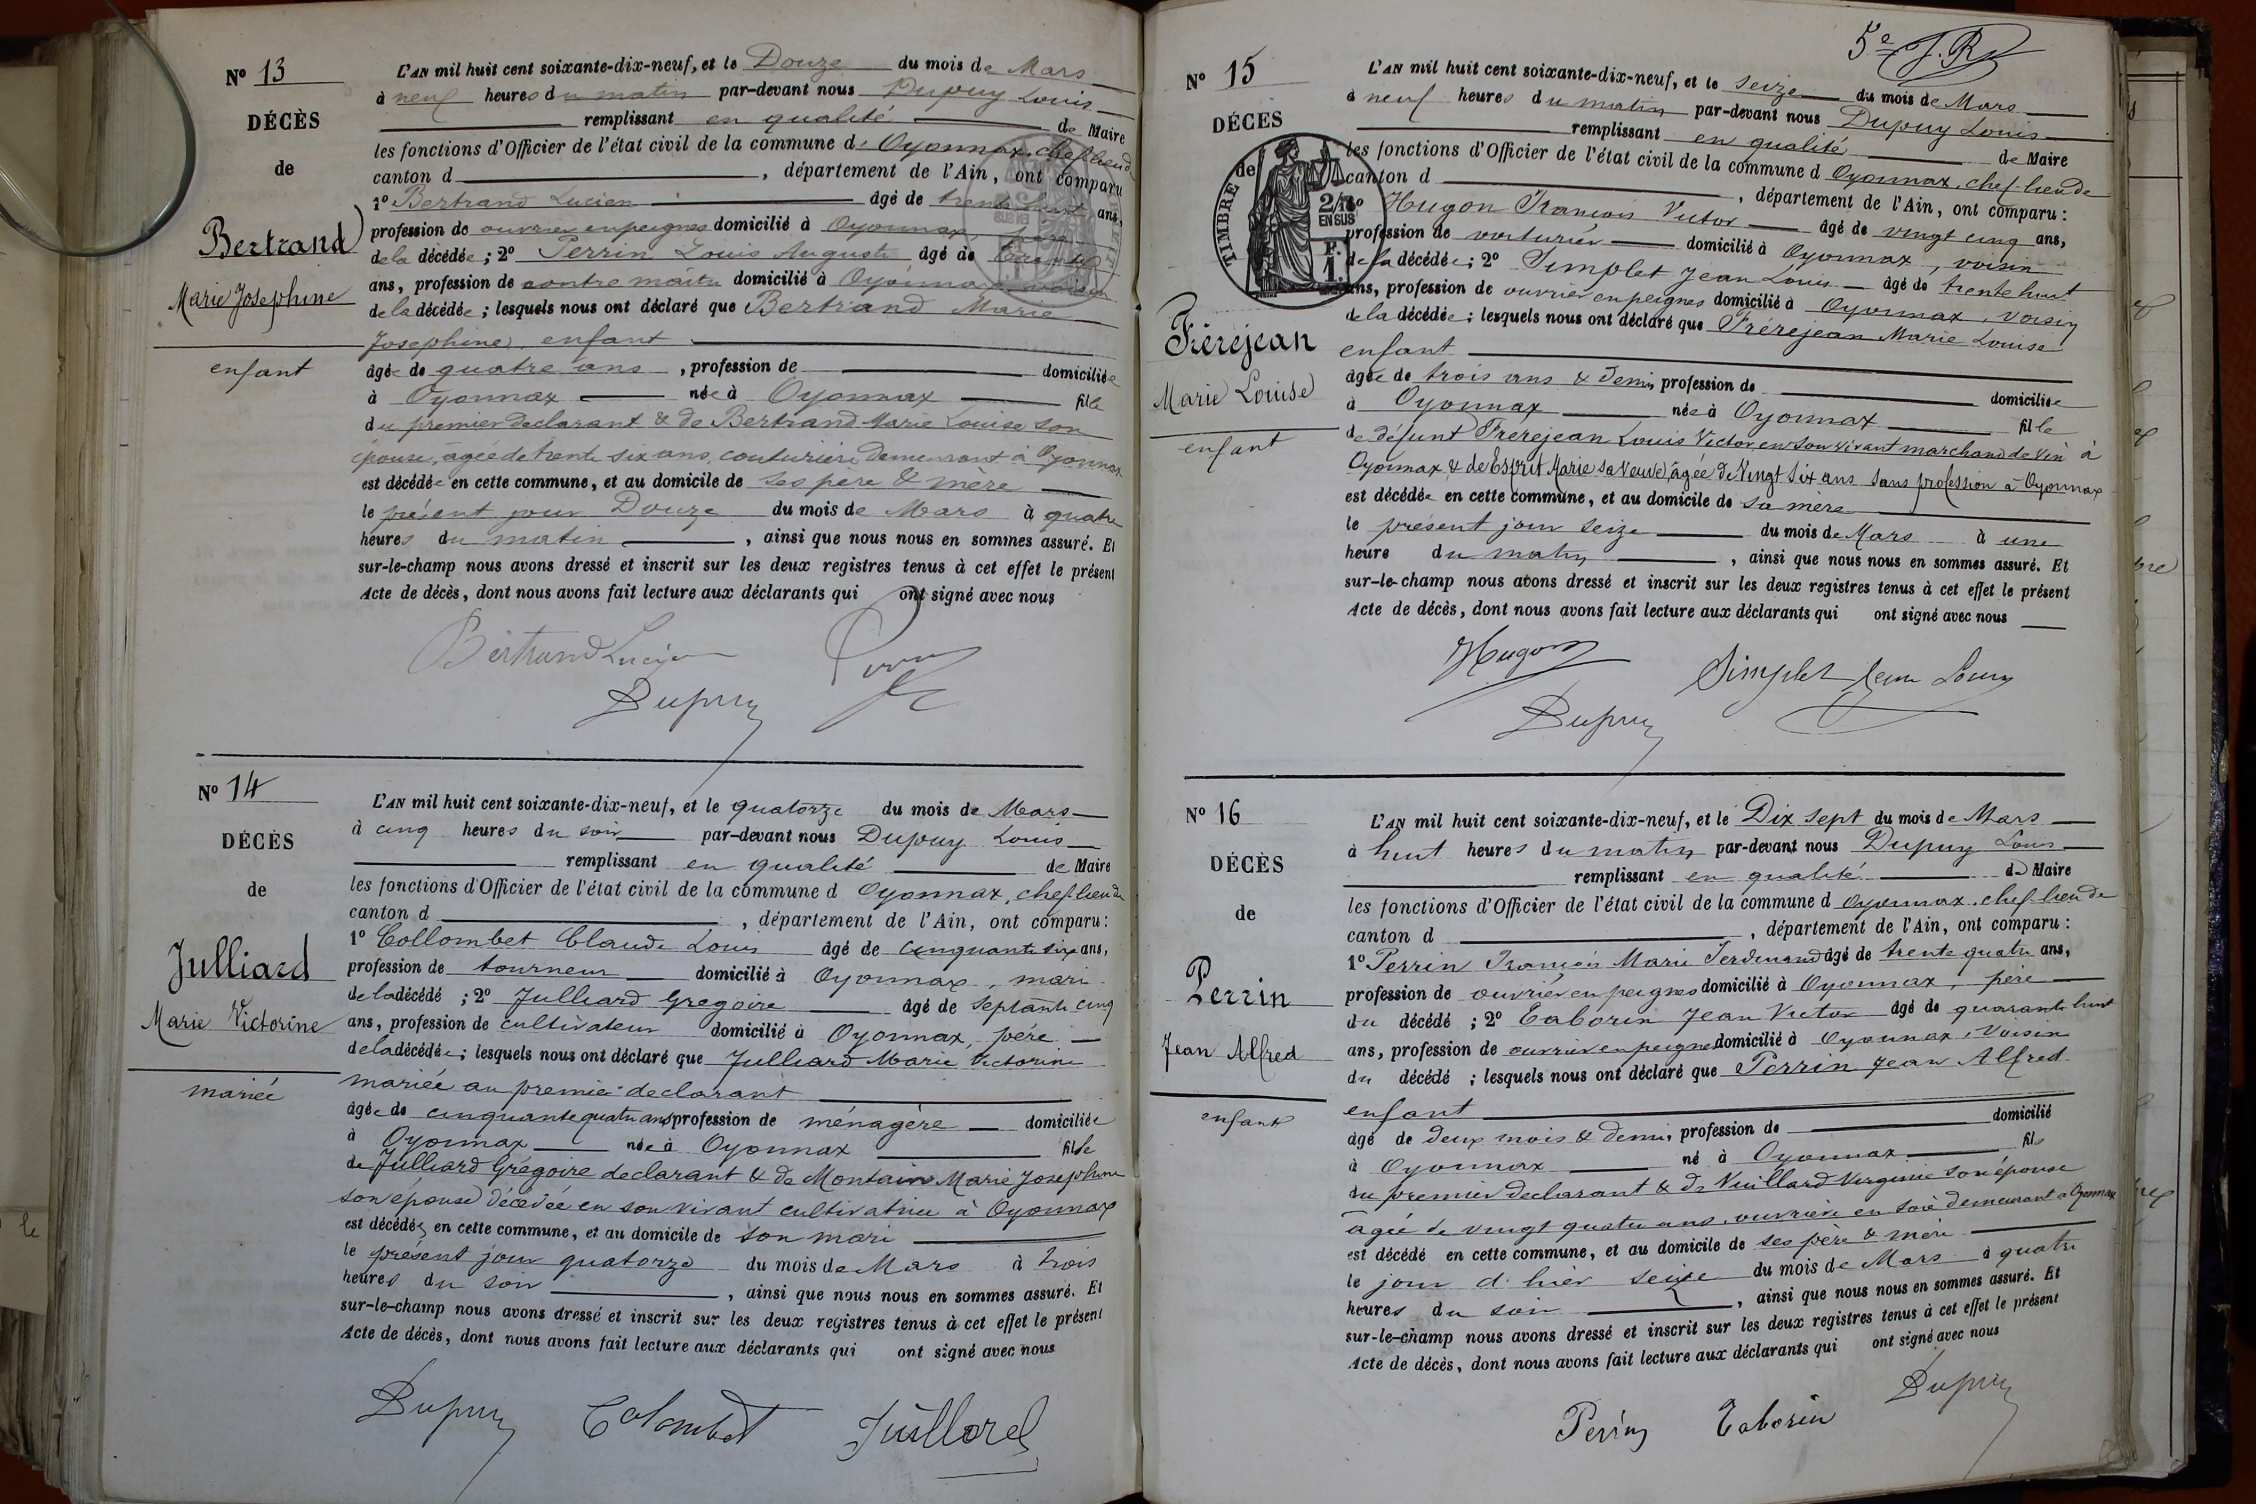 Nº 13
DÉCÈS
de
Bertrand
Marie Josephine
enfant
L'AN mil huit cent soixante-dix-neuf, et le Douze du mois de Mars
à neuf heures du matin par-devant nous Dupuy Louis
remplissant en qualité de Maire
les fonctions d'Officier de l'état civil de la commune d' Oyonnax, chef lieu de
canton d , département de l'Ain, ont comparu
1º Bertrand Lucien âgé de trente huit ans,
profession de ouvrier en peignes domicilié à Oyonnax, père
de la décédée ; 2º Perrin Louis Auguste âgé de
ans, profession de contre maître domicilié à Oyonnax, voisin
de la décédée ; lesquels nous ont déclaré que Bertrand Marie
Josephine, enfant
âgée de quatre ans , profession de domiciliée
à Oyonnax née à Oyonnax fille
du premier declarant & de Bertrand Marie Louise son
épouse, agée de trente six ans, couturière demeurant à Oyonnax
est décédée en cette commune, et au domicile de ses père & mère
le présent jour Douze du mois de Mars à quatre
heures du matin , ainsi que nous nous en sommes assuré. Et
sur-le-champ nous avons dressé et inscrit sur les deux registres tenus à cet effet le présent
Acte de décès, dont nous avons fait lecture aux déclarants qui ont signé avec nous
Bertrand Lucien
Dupuy
Nº 14
DÉCÈS
de
Julliard
Marie Victorine
mariée
L'AN mil huit cent soixante-dix-neuf, et le quatorze du mois de Mars
à cinq heures du soir par-devant nous Dupuy Louis
remplissant en qualité de Maire
les fonctions d'Officier de l'état civil de la commune d Oyonnax, chef lieu de
canton d , département de l'Ain, ont comparu :
1º Collombet Claude Louis âgé de cinquante six ans,
profession de tourneur domicilié à Oyonnax, mari
de la décédé ; 2º Julliard Gregoire âgé de septante cinq
ans, profession de cultivateur domicilié à Oyonnax, père
de la décédée ; lesquels nous ont déclaré que Julliard Marie Victorine
mariée au premier declarant
âgée de cinquante quatre ans profession de ménagère domiciliée
à Oyonnax née à Oyonnax fille
de Julliard Grégoire declarant & de Montain Marie Josephine
son épouse décédée en son vivant cultivatrice à Oyonnax
est décédée en cette commune, et au domicile de son mari
le présent jour quatorze du mois de Mars à trois
heures du soir , ainsi que nous nous en sommes assuré. Et
sur-le-champ nous avons dressé et inscrit sur les deux registres tenus à cet effet le présent
Acte de décès, dont nous avons fait lecture aux déclarants qui ont signé avec nous
Dupuy Colombet Juillard
5e J. R
Nº 15
DÉCÈS
de
TIMBRE
2/10
EN SUS
F.
1.
Fréréjean
Marie Louise
enfant
L'AN mil huit cent soixante-dix-neuf, et le seize du mois de Mars
à neuf heures du matin par-devant nous Dupuy Louis
remplissant en qualité de Maire
les fonctions d'Officier de l'état civil de la commune d Oyonnax, chef-lieu de
canton d , département de l'Ain, ont comparu :
1º Hugon François Victor âgé de vingt cinq ans,
profession de voiturier domicilié à Oyonnax, voisin
de la décédée ; 2º Simplet Jean Louis âgé de trente huit
ans, profession de ouvrier en peignes domicilié à Oyonnax, voisin
de la décédée ; lesquels nous ont déclaré que Fréréjean Marie Louise
enfant
âgée de trois ans & demi, profession de domiciliée
à Oyonnax née à Oyonnax fille
de défunt Fréréjean Louis Victor en son vivant marchand de vin à
Oyonnax & de Esprit Marie sa veuve, âgée de Vingt six ans sans profession à Oyonnax
est décédée en cette commune, et au domicile de sa mère
le présent jour seize du mois de Mars à une
heure du matin , ainsi que nous nous en sommes assuré. Et
sur-le-champ nous avons dressé et inscrit sur les deux registres tenus à cet effet le présent
Acte de décès, dont nous avons fait lecture aux déclarants qui ont signé avec nous
Hugon Simplet Jean Louis
Dupuy
Nº 16
DÉCÈS
de
Perrin
Jean Alfred
enfant
L'AN mil huit cent soixante-dix-neuf, et le Dix sept du mois de Mars
à huit heures du matin par-devant nous Dupuy Louis
remplissant en qualité de Maire
les fonctions d'Officier de l'état civil de la commune d Oyonnax, chef-lieu de
canton d , département de l'Ain, ont comparu :
1º Perrin François Marie Ferdinand âgé de trente quatre ans,
profession de ouvrier en peignes domicilié à Oyonnax, père
du décédé ; 2º Taborin Jean Victor âgé de quarante huit
ans, profession de ouvrier en peignes domicilié à Oyonnax, Voisin
du décédé ; lesquels nous ont déclaré que Perrin Jean Alfred
enfant
âgé de deux mois & demi, profession de domicilié
à Oyonnax né à Oyonnax fils
du premier declarant & de Vuillard Virginie son épouse
âgée de vingt quatre ans, ouvrière en soie demeurant à Oyonnax
est décédé en cette commune, et au domicile de ses père & mère
le jour d'hier seize du mois de Mars à quatre
heures du soir , ainsi que nous nous en sommes assuré. Et
sur-le-champ nous avons dressé et inscrit sur les deux registres tenus à cet effet le présent
Acte de décès, dont nous avons fait lecture aux déclarants qui ont signé avec nous
Perrin Taborin Dupuy